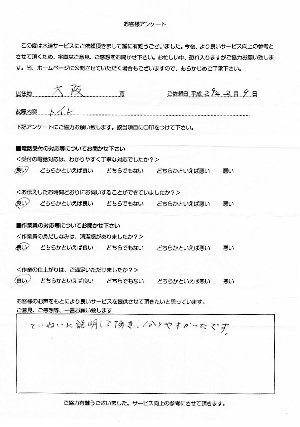 お客様アンケート
この度は水道サービスにご依頼頂きまして誠に有難うございました。今後、より良いサービス向上の参考と
させて頂くため、率直なご意見、ご感想をお聞かせ下さい。お忙しい中、恐れ入りますがご協力お願い致しま
す。尚、ホームページに公開させていただく場合もございますので、あらかじめご了承下さい。
居住地 大阪 市 ご依頼日 平成 29年 2月 9日
故障内容 トイレ
下記アンケートにご協力お願い致します。該当項目に〇印をつけて下さい。
■電話受付の対応等についてお聞かせ下さい
<受付の電話対応は、わかりやすく丁寧な対応でしたか?>
良い どちらかといえば良い どちらでもない どちらかといえば悪い 悪い
<お伝えしたお時間どおりにお伺いすることができていましたか?>
良い どちらかといえば良い どちらでもない どちらかといえば悪い 悪い
■作業員の対応等についてお聞かせ下さい
<作業員の身だしなみは、清潔感がありましたか?>
良い どちらかといえば良い どちらでもない どちらかといえば悪い 悪い
<作業の仕上がりは、ご満足いただけましたか?>
良い どちらかといえば良い どちらでもない どちらかといえば悪い 悪い
お客様のお声をもとにより良いサービスを提供させて頂きたいと思っています。
ご意見、ご感想等、一言お願い致します
ていねいに説明して頂き、分りやすかったです。
ご協力有難うございました。サービス向上の参考にさせて頂きます。